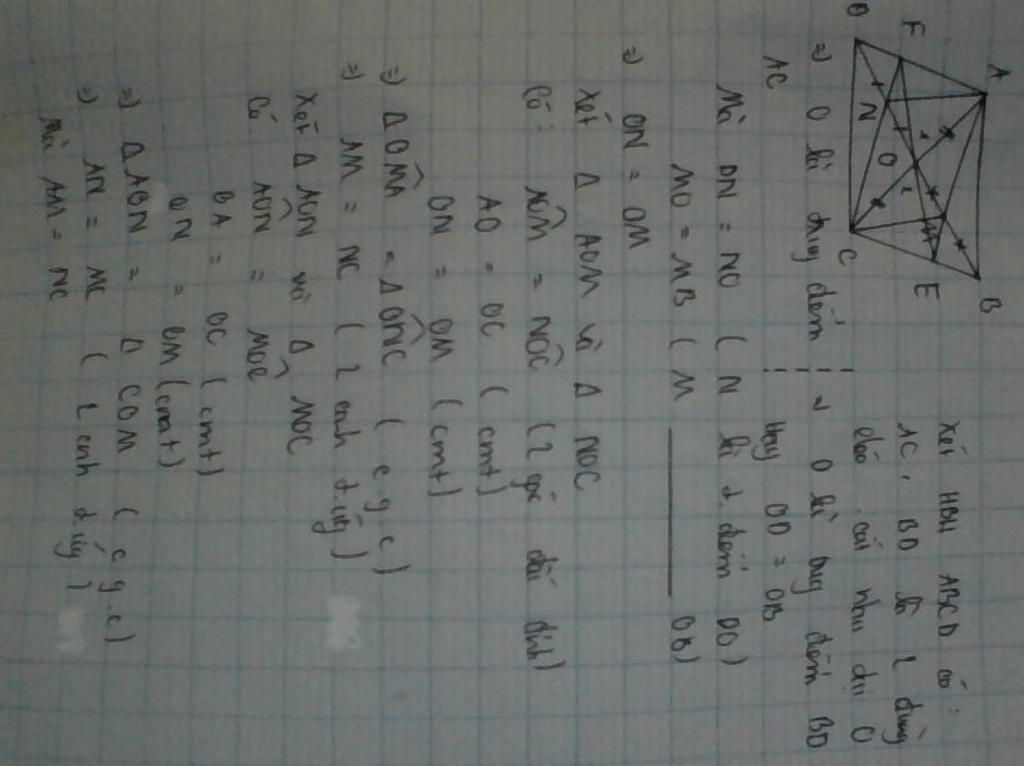 A
B
F
E
D
N
O
M
C
1
2
Xét HBH ABCD có:
AC, BD là 2 đường
chéo cắt nhau tại O
=> O là trung điểm AC
=> O là trung điểm BD
Hay OD = OB
Mà DN = NO (N là t.điểm DO)
MO = MB (M ———— OB)
=> ON = OM
Xét Δ AOM và Δ NOC
Có: AÔM = NÔC (2 góc đối đỉnh)
AO = OC (cmt)
ON = OM (cmt)
=> Δ OMA = Δ ONC (c g c)
=> AM = NC (2 cạnh t.ứg)
Xét Δ AON và Δ MOC
Có AÔN = MÔC
OA = OC (cmt)
ON = OM (cmt)
=> Δ AON = Δ COM (c g.c)
=> AN = MC (2 cạnh t.ứg)
Mà AM = NC